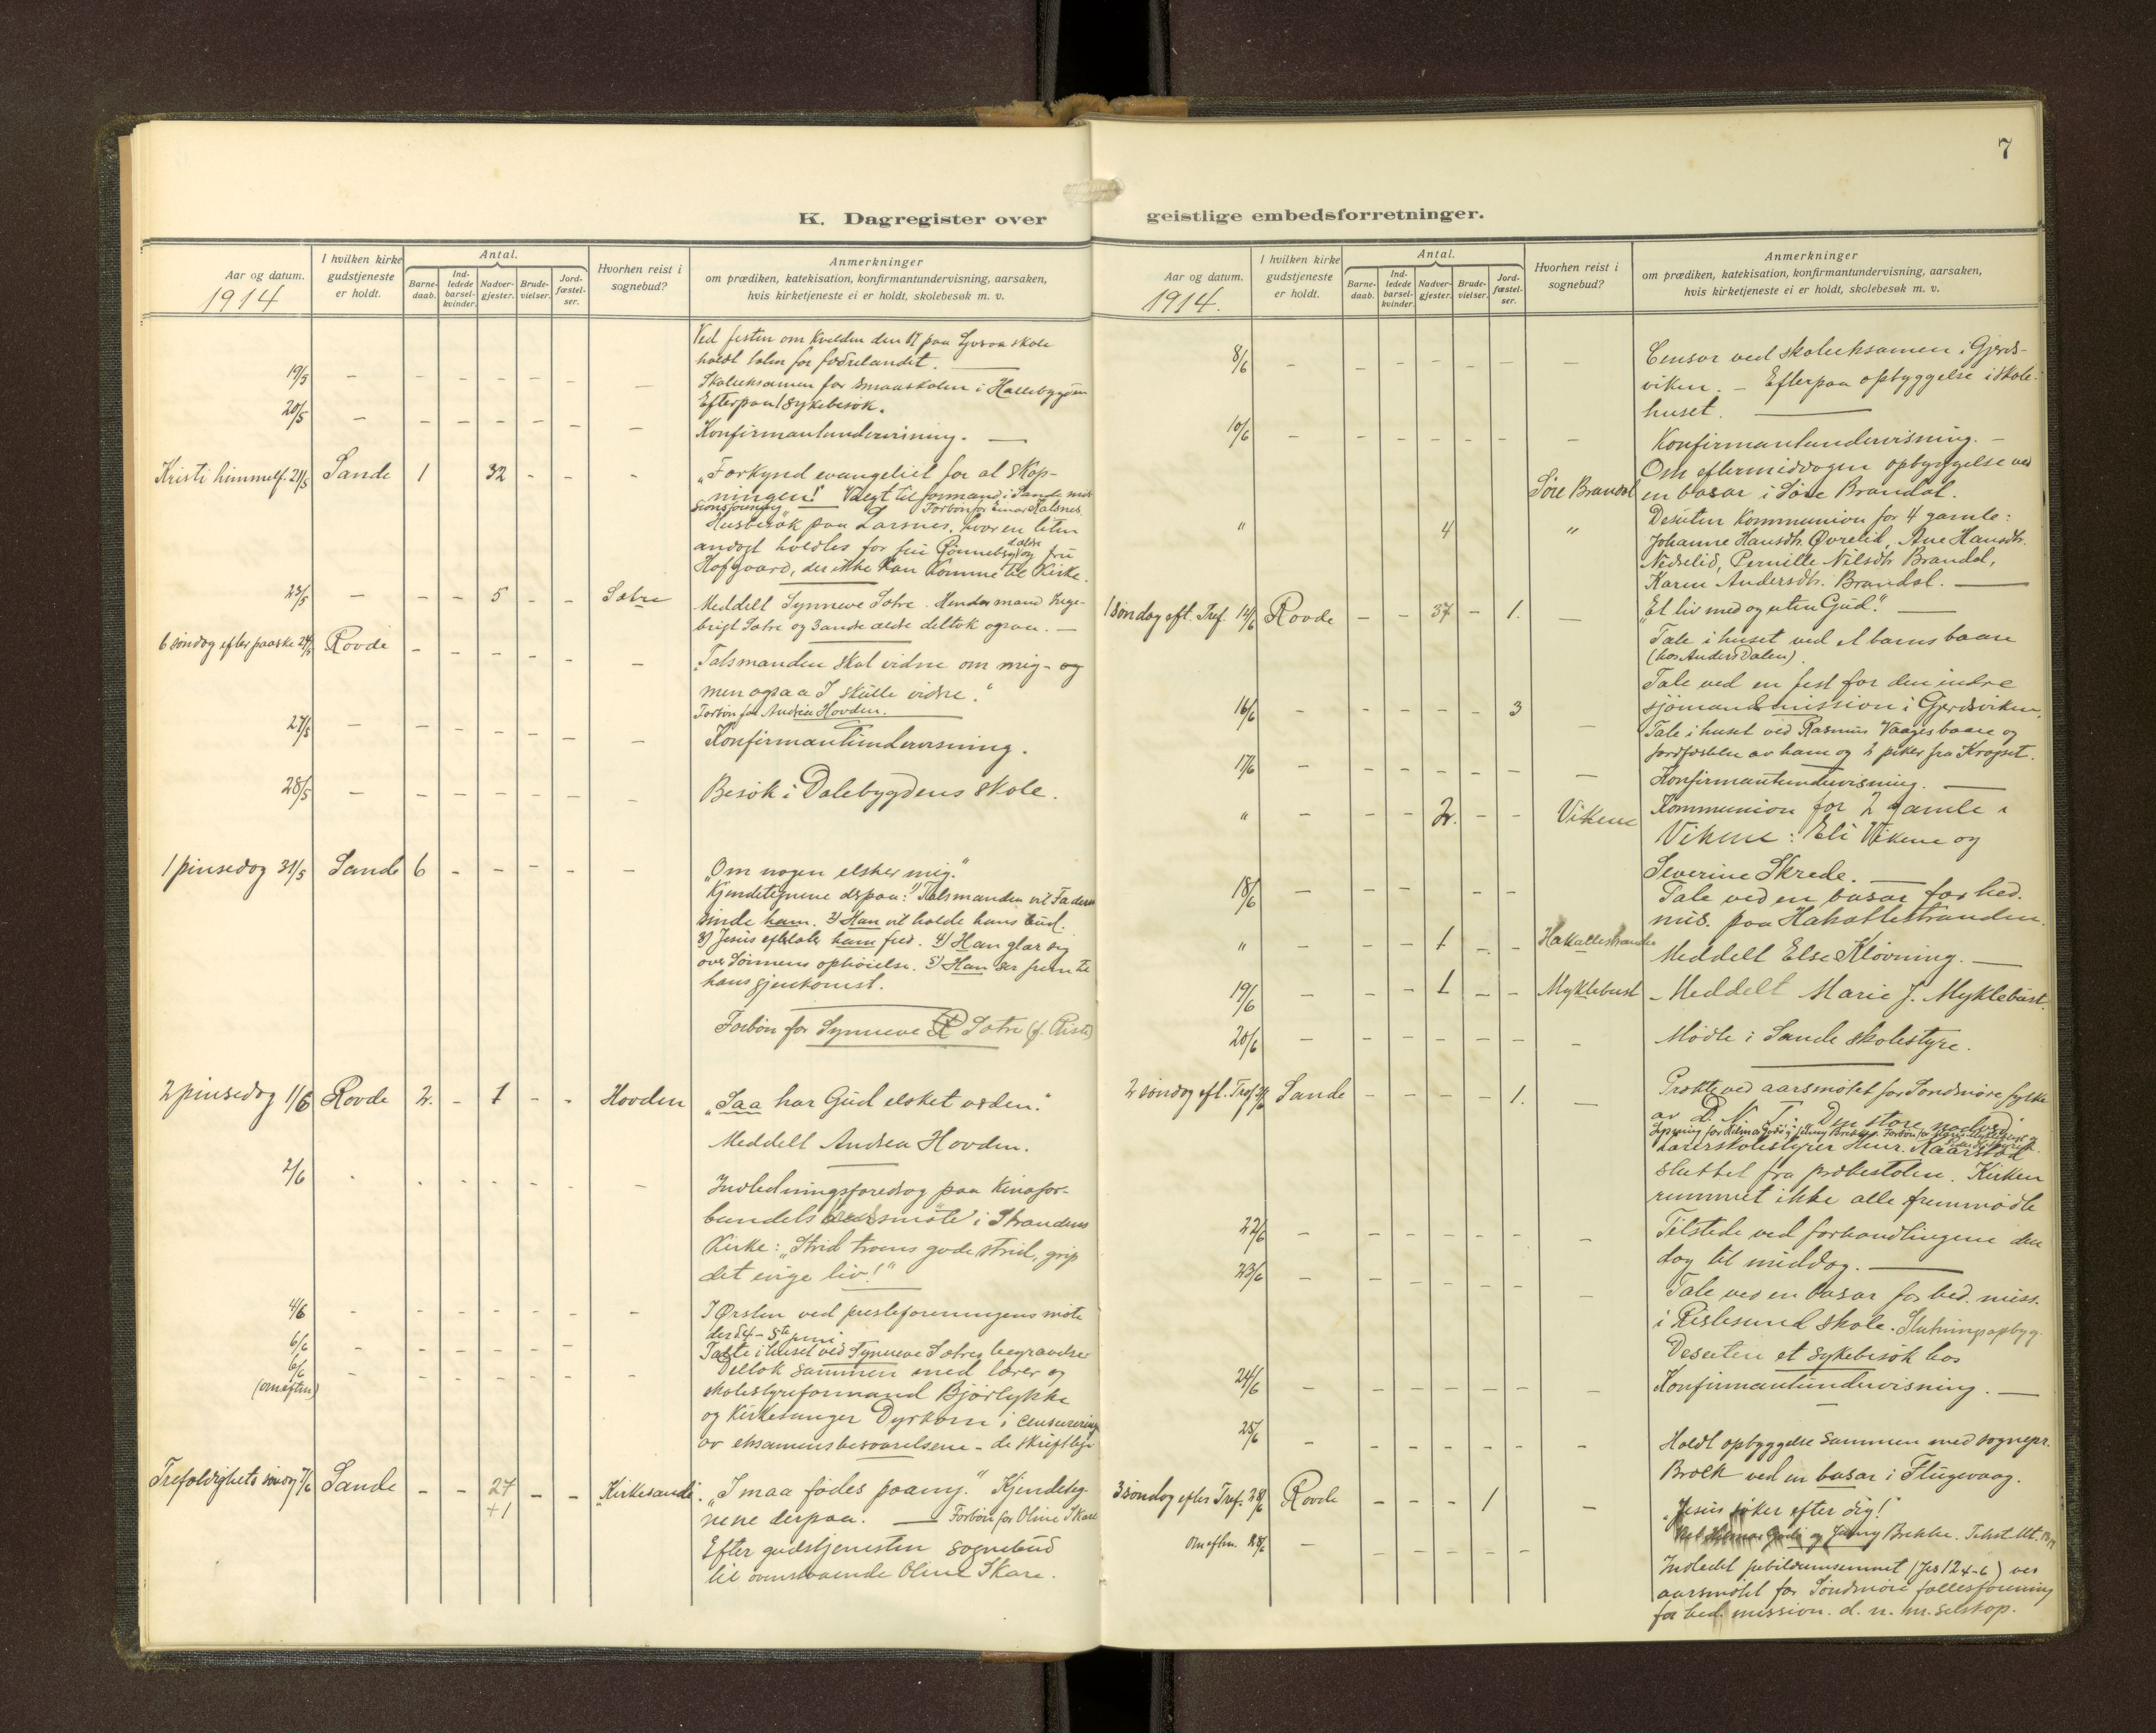 7
K. Dagregister over
geistlige embedsforretninger.
Aar og datum.
1914
I hvilken kirke
gudstjeneste
er holdt.
Antal.
Barne-
daab.
Ind-
ledede
barsel-
kvinder.
Nadver-
gjester.
Brude-
vielser.
Jord-
fæstel-
ser.
Hvorhen reist i
sognebud?
Anmerkninger
om prædiken, katekisation, konfirmantundervisning, aarsaken,
hvis kirketjeneste ei er holdt, skolebesøk m. v.
Ved festen om kvelden den 17 paa skole
holdt talen for fædrelandet.
19/5 - - - - - - - Skoleeksamen for smaaskolen i Hallebygden
Efterpaa 1 sykebesøk.
20/5 - - - - - - - Konfirmantundervisning. -
Kristi himmelf. 21/5 Sande 1 32 - - - "Forkynd evangeliet for al skap-
ningen!" Valgt til formand i Sande mis-
sionsforening Forbøn for Einar Kalsnes.
Husbesøk paa Larsnes, hvor en liten
andagt holdtes for fru Rønneberg og ældre fru
Hofgaard, der ikke kan komme til kirke.
23/5 - - - 5 - - Sætre Meddelt Synneve Sætre. Hendes mand Inge-
brigt Sætre og 3 andre ældre deltok ogsaa. -
6 søndag efter paaske 24/5 Rovde - - - - - - "Talsmanden skal vidne om mig - og
men ogsaa I skulle vidne."
Forbøn for Andrea Hovden.
27/5 - - - - - - - Konfirmantundervisning.
28/5 - - - - - - - Besøk i Dalebygdens skole.
1 pinsedag 31/5 Sande 6 - - - - - "Om nogen elsker mig."
Kjendetegnene derpaa: 1) Talsmanden vil Faderen
sende ham. 2) Han vil holde hans bud.
3) Jesus efterlater ham fred. 4) Han glær sig
over Sønnens ophøielse. 5) Han ser frem til
hans gjenkomst.
Forbøn for Synneve R Sætre (f. Riste)
2 pinsedag 1/6 Rovde 2. - 1 - - Hovden "Saa har Gud elsket verden."
Meddelt Andrea Hovden.
2/6 - - - - - - - Indledningsforedrag paa Kinafor-
bundets aarsmøte i Strandens
Kirke: "Strid troens gode strid, grip
det evige liv!"
4/6 - - - - - - - I Ørsten ved presteforeningens møte
der 4 - 5te juni.
6/6 - - - - - - Talte i huset ved Synneve Sætres begravelse
6/6 (om eftm) - - - - - - - Deltok sammen med lærer og
skolestyreformand Bjørlykke
og kirkesanger Dyrkorn i censurering
av eksamensbesvarelsene - de skriftlige
Trefoldighets søndag 7/6 Sande - - 27 +1 - - Kirkesande. "I maa fødes paany." Kjendeteg-
nene derpaa. — Forbøn for Oline Skare
Efter gudstjenesten sognebud
til ovenstaaende Oline Skare.
Aar og datum.
1914.
I hvilken kirke
gudstjeneste
er holdt.
Antal.
Barne-
daab.
Ind-
ledede
barsel-
kvinder.
Nadver-
gjester.
Brude-
vielser.
Jord-
fæstel-
ser.
Hvorhen reist i
sognebud?
Anmerkninger
om prædiken, katekisation, konfirmantundervisning, aarsaken,
hvis kirketjeneste ei er holdt, skolebesøk m. v.
8/6 - - - - - - - Censor ved skoleeksamen i Gjerds-
viken. - Efterpaa opbyggelse i skole-
huset.
10/6 - - - - - - - Konfirmantundervisning. -
Søre Brandal Om eftermiddagen opbyggelse ved
en basar i Søre Brandal.
" 4 " Desuten kommunion for 4 gamle:
Johanne Hansdtr. Øvrelid, Ane Hansdtr.
Nedrelid, Pernille Nilsdtr. Brandal,
Karen Andersdtr. Brandal. —
1 søndag eft. Tref. 14/6 Rovde - - 37 - 1. - "Et liv med og uten Gud." —
Tale i huset ved et barns baare
(hos Anders Dalen).
Tale ved en fest for den indre
sjømandsmission i Gjerdsviken.
16/6 - - - - - 3 - Tale i huset ved Rasmus Vaages baare og
jordfæstelse av ham og 2 piker fra Kragset.
17/6 - - - - - - - Konfirmantundervisning. —
" - - - 2. - - Vikene Kommunion for 2 gamle i
Vikene: Eli Vikene og
Severine Skrede. —
18/6 - - - - - - Tale ved en basar for hed.
mis. paa Hakallestranden.
" - - - 1 - - Hakallestranden Meddelt Else Kløvning. —
19/6 - - - 1 - - Myklebust Meddelt Marie J. Myklebust.
20/6 - - - - - - - Møtte i Sande skolestyre.
2 søndag eft. Tref. 21/6 Sande - - - - 1. - Prækte ved aarsmøtet for Søndmøre fylke
av D. N. T. Den store nadver.
Lærerskolestyrer Henr. Kaarstad
sluttet fra prækestolen. Kirken
rummet ikke alle fremmødte
22/6 - - - - - - - Tilstede ved forhandlingene den
dag til middag. —
23/6 - - - - - - - Tale ved en basar for hed. miss.
i Fiskesund skole. Slutningsopbyg.
Desuten et sykebesøk hos
24/6 - - - - - - - Konfirmantundervisning. —
25/6 - - - - - - - Holdt opbyggelse sammen med sognepr.
Brock ved en basar i Flugevaag.
3 søndag efter Tref. 28/6 Rovde - - - 1 - "Jesus søker efter dig!"
Jenny Brekke. Tekst Mt.
Om eftm. 28/6 - - - - - - Indledet jubilæumsemnet (Jes 12 4-6) ved
aarsmøtet for Søndmøre fællesforening
for hed. mission. d. n. m. selskap.